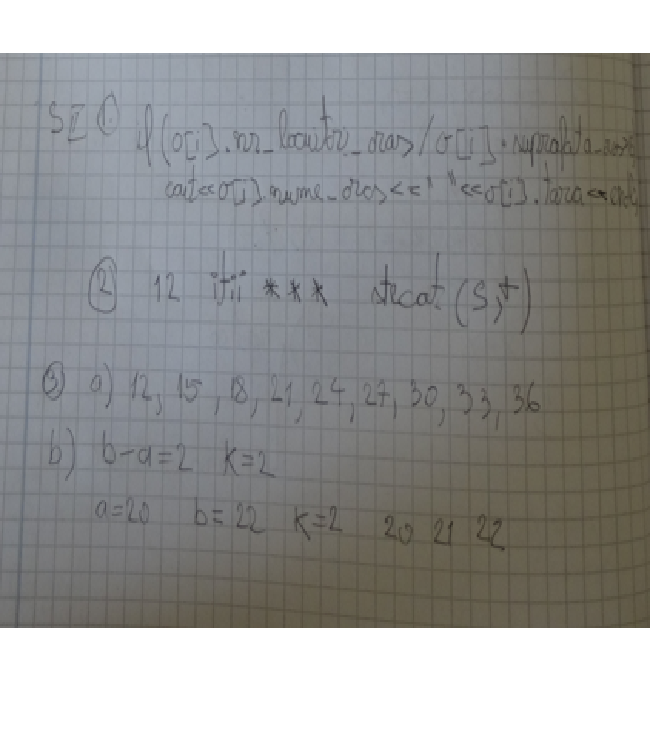 SII ① if (o[i].nr_locuitori_oras / o[i].suprafata_oras
cout<<o[i].nume_oras<<" "<<o[i].tara<<endl
② 12 iții *** strcat (s,t)
③ a) 12, 15, 18, 21, 24, 27, 30, 33, 36
b) b-a=2 k=2
a=20 b=22 k=2 20 21 22